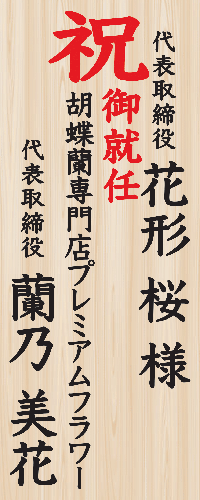 祝
御就任
代表取締役
花形 桜 様
胡蝶蘭専門店プレミアムフラワー
代表取締役
蘭乃 美花